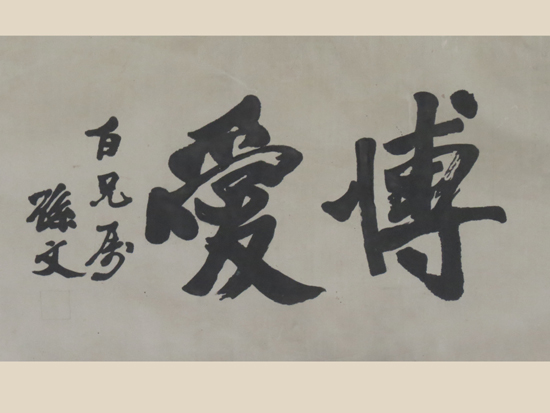 博愛
百兄屬
孫文